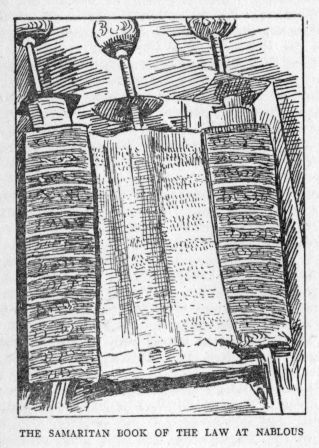 THE SAMARITAN BOOK OF THE LAW AT NABLOUS